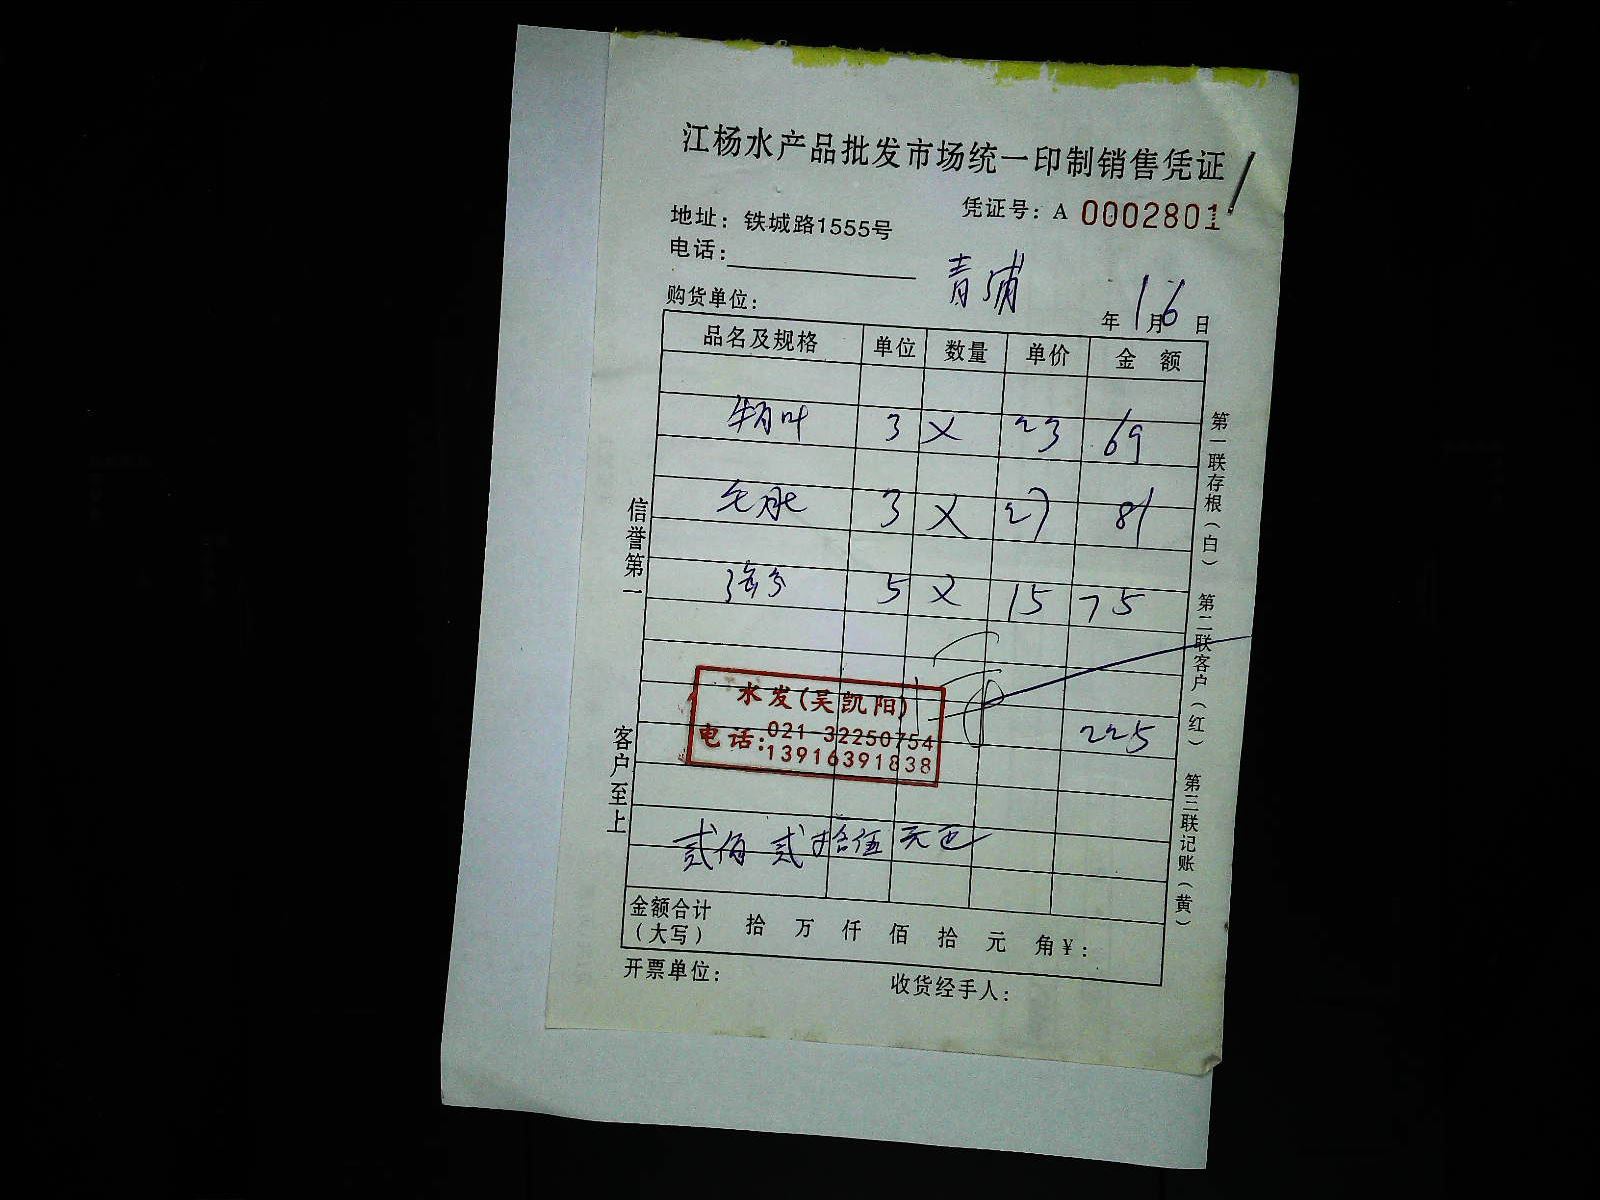 江杨水产品批发市场统一印制销售凭证
凭证号：A 0002801
地址：铁城路1555号
电话：
青浦
购货单位：
年 1 月 6 日
品名及规格 单位 数量 单价 金 额
3 × 23 69
毛肚 3 × 27 81
5 × 15 75
水发(吴凯阳)
电话：021-32250754
13916391838
225
贰佰 贰拾伍 元正
金额合计（大写） 拾 万 仟 佰 拾 元 角 ¥：
开票单位： 收货经手人：
信誉第一
客户至上
第一联存根（白）
第二联客户（红）
第三联记账（黄）